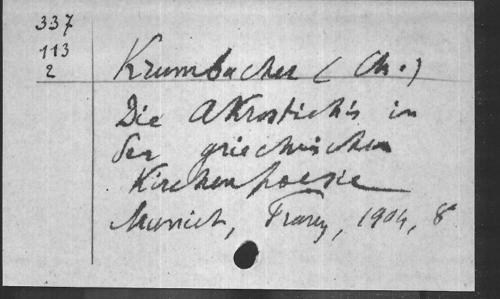 337
113
2
Krumbacher (Ch.)
Die Akrostichis in
der griechischen
Kirchenpoesie
Munich, Franz, 1904, 8°